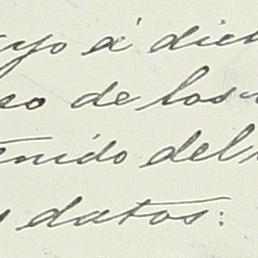 ayo á dich
eo de los
tenido del
s datos: